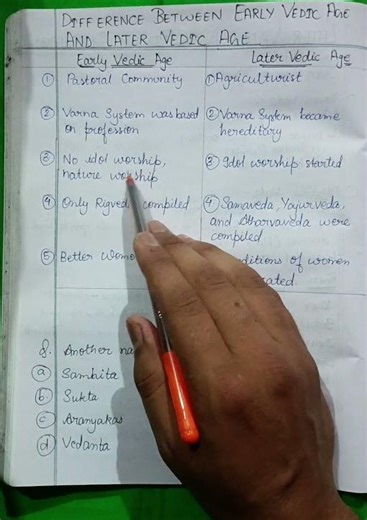 DIFFERENCE BETWEEN EARLY VEDIC AGE
AND LATER VEDIC AGE
Early Vedic Age
Later Vedic Age
① Pastoral Community
① Agriculturist
② Varna System was based
on profession
② Varna System became
hereditary
③ No idol worship,
nature worship
③ Idol worship started
④ Only Rigveda compiled
④ Samaveda, Yajurveda,
and Atharvaveda were
compiled
⑤ Better
of women
8. Another
ⓐ Samhita
ⓑ Sukta
ⓒ Aranyakas
ⓓ Vedanta